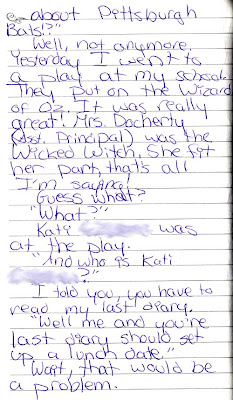 about Pettsburgh
Bats!?"
Well, not anymore.
Yesterday I went to
a play at my school.
They put on the Wizard
of Oz. It was really
great! Mrs. Docherty
(Asst. Principal) was the
Wicked Witch. She fit
her part, that's all
I'm saying!
Guess what?
"What?"
Kati was
at the play.
"And who is Kati
?"
I told you, you have to
read my last diary.
"Well me and you're
last diary should set
up a lunch date."
Wait, that would be
a problem.